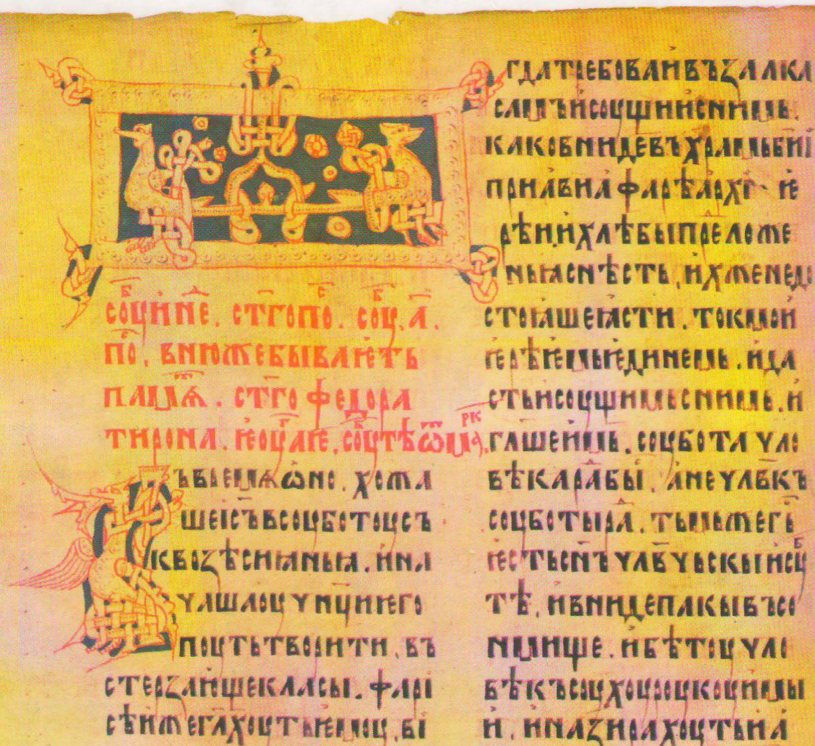 соуине. стго по. соу. а.
по. вньюже бываѥть
памѧ. стго федора
тирона. ѥоуаг҃. соутѣ ѡ мр҃к
ъврѣмѧѡно. хожа
шеис҃ъвсоуботоусъ
квозѣсниѧньꙗ. инa
чѧшаоучнциѥго
поутьтворити. въ
стерзаꙗшекласы. фари
сѣижегл҃ахоутьѥмоу. ви
гдатребованвъзалка
самъисоущиисн҃имь.
каковнидевъхрамъби҃и
приавиафарѣархі· ѥ
рѣи. ихлѣбыпреложе
ньꙗснѣсть. ихженедо
стоꙗшеꙗсти. токмои
ѥрѣѥмьѥдинемь. ида
стьисоущимъсн҃имь. и
гл҃ашеимь. соуботачло
вѣкарады. анечл҃вкъ
соуботыра. тѣмьжег҃ь
ѥстьсн҃ъчл҃вчьскыисоу
тѣ. ивнидепакывъсо
нмище. ибѣтоучло
вѣкъсоухоуроукоуимы
и. иназирахоутьиа